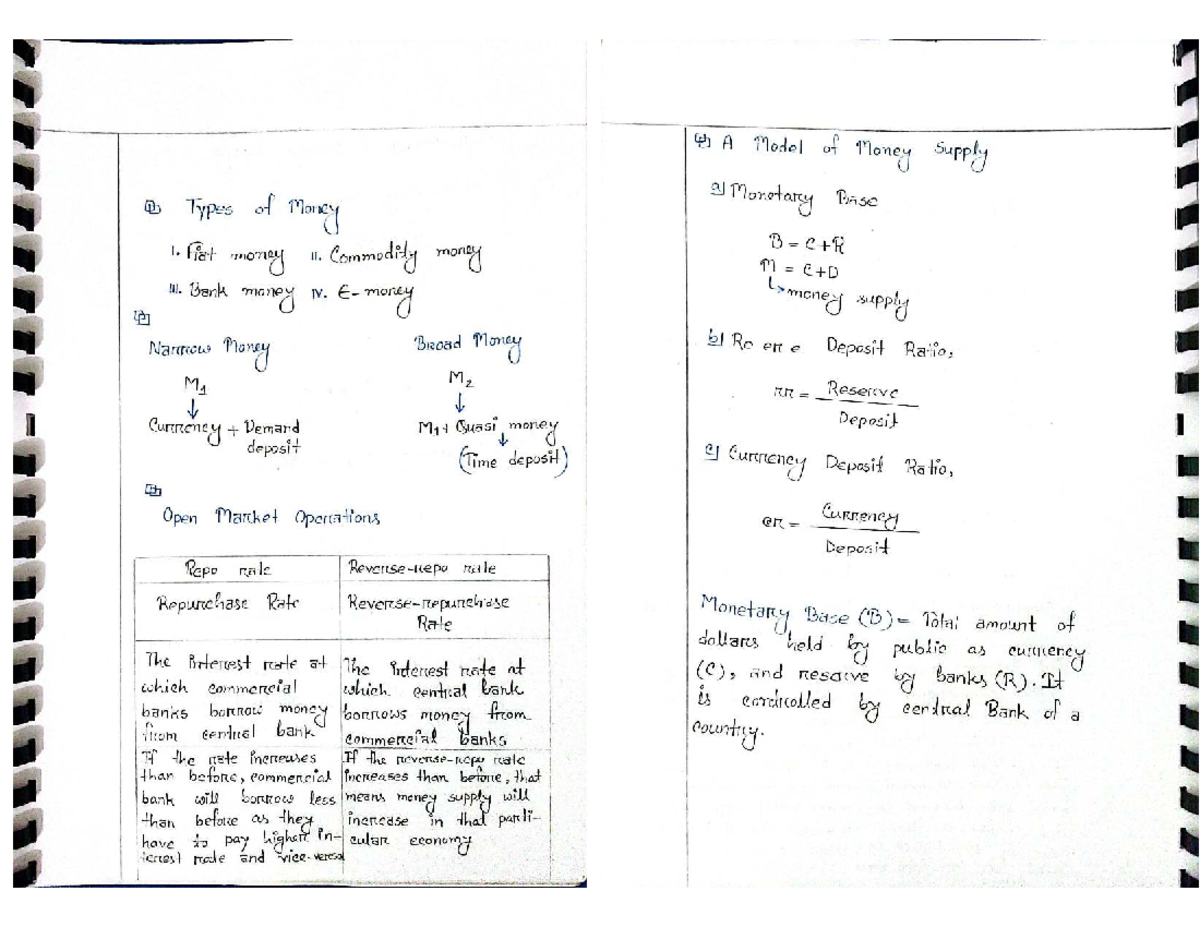 Types of Money
I. Fiat money II. Commodity money
III. Bank money IV. E-money
Narrow Money Broad Money
M1 M2
↓ ↓
Currency + Demand deposit M1 + Quasi money
↓
(Time deposit)
Open Market Operations
Repo rate Reverse-repo rate
Repurchase Rate Reverse-repurchase
Rate
The interest rate at
which commercial
banks borrow money
from central bank
The interest rate at
which central bank
borrows money from
commercial banks
If the rate increases
than before, commercial
bank will borrow less
than before as they
have to pay higher in-
terest rate and vice-versa
If the reverse-repo rate
increases than before, that
means money supply will
increase in that parti-
cular economy
A Model of Money Supply
a) Monetary Base
B = C+R
M = C+D
↳ money supply
b) Deposit Ratio,
rr = Reserve
Deposit
c) Currency Deposit Ratio,
cr = Currency
Deposit
Monetary Base (B) = Total amount of
dollars held by public as currency
(C), and reserve by banks (R). It
is controlled by central Bank of a
country.